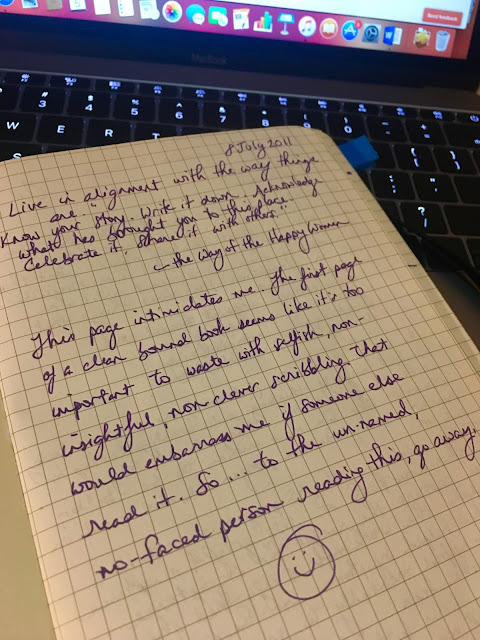 Send feedback
MacBook
8 July 2011
Live in alignment with the way things
are "
Know your story. Write it down. Acknowledge
what has brought you to this place.
Celebrate it. Share it with others."
- the Way of the Happy Woman
This page intimidates me. The first page
of a clean bound book seems like it's too
important to waste with selfish, non-
insightful, non-clever scribbling that
would embarrass me if someone else
read it. So... to the un-named,
no-faced person reading this, go away.